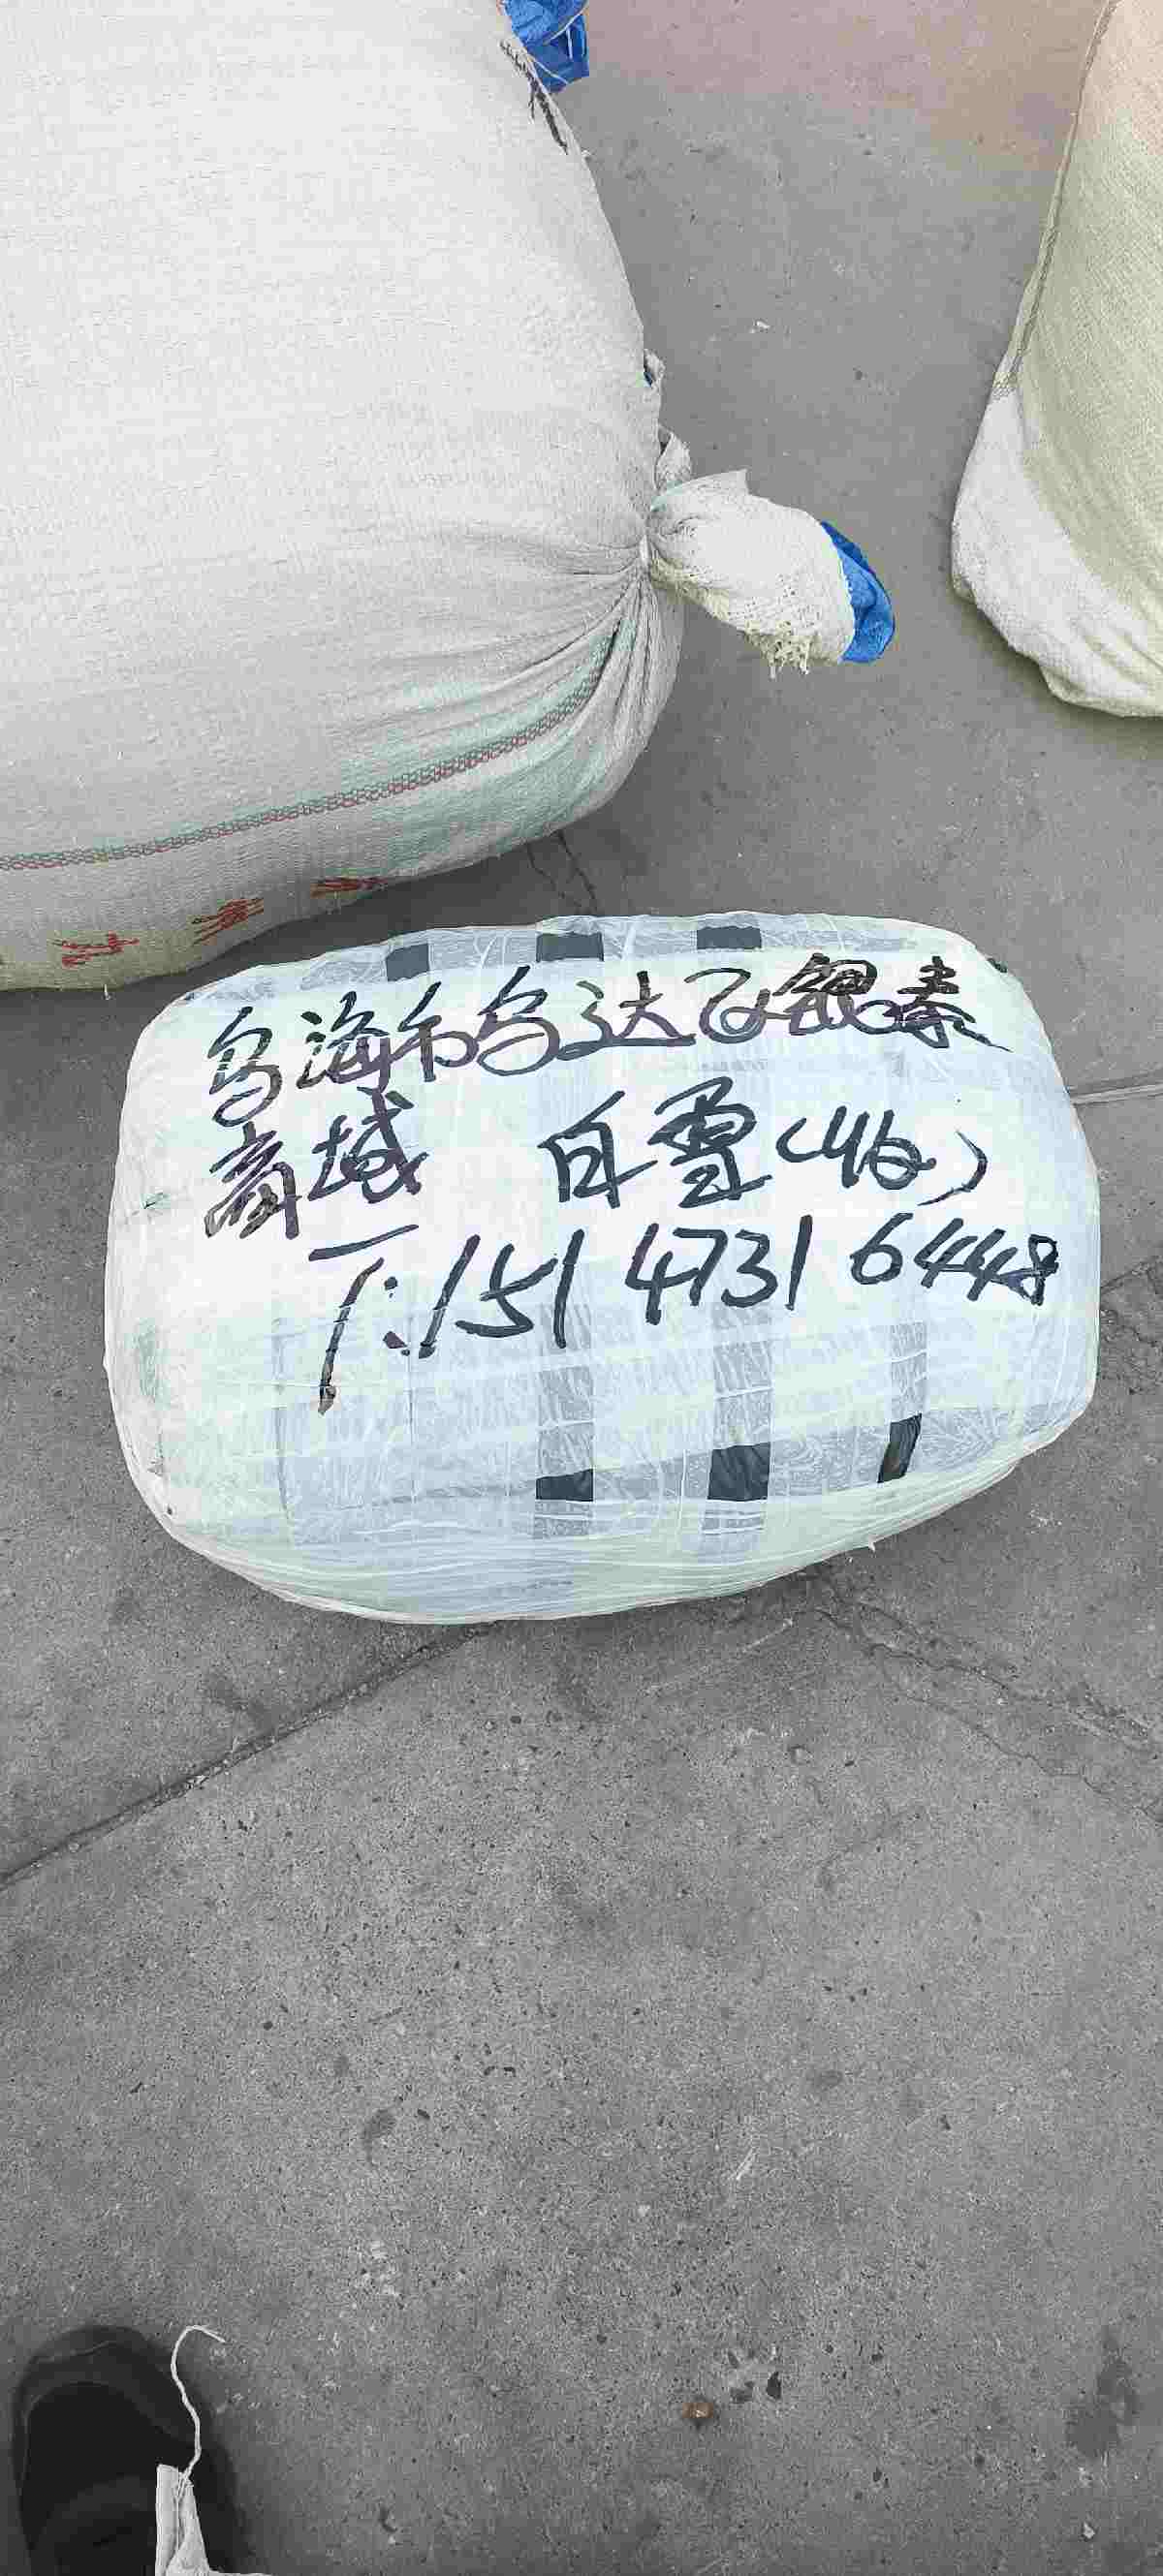 乌海市乌达区银泰
商城 白雪(46)
T:151 4731 6448